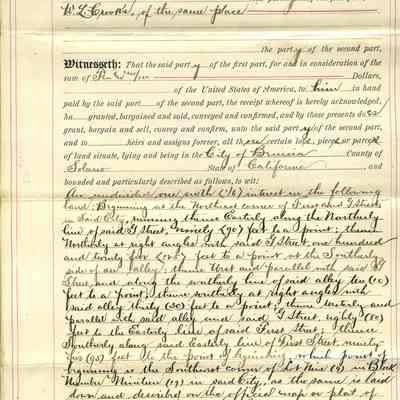 W. L. Crooks, of the same place
the party of the second part,
Witnesseth: That the said party of the first part, for and in consideration of the
sum of Ten Dollars,
of the United States of America, to him in hand
paid by the said part of the second part, the receipt whereof is hereby acknowledged,
ha granted, bargained and sold, conveyed and confirmed, and by these presents does
grant, bargain and sell, convey and confirm, unto the said party of the second part,
and to heirs and assigns forever, all those certain lots, pieces or parcels
of land situate, lying and being in the City of Benicia County of
Solano State of California, and
bounded and particularly described as follows, to wit:
An undivided one sixth (1/6) interest in the following
land: Beginning at the Northeast corner of First and G Streets
in said City, running thence Easterly along the Northerly
line of said G Street, ninety (90) feet to a point; thence
Northerly at right angles with said G Street one hundred
and twenty five (125) feet to a point on the Southerly
side of an alley; thence West and parallel with said G
Street and along the southerly line of said alley ten (10)
feet to a point; thence southerly at right angles with
said alley thirty (30) feet to a point; thence westerly and
parallel with said alley and said G Street, eighty (80)
feet to the Easterly line of said First Street; thence
Southerly along said Easterly line of First Street ninety-
five (95) feet to the point of beginning, which point of
beginning is the Southwest corner of Lot Nine (9) in Block
Number Nineteen (19) in said City, as the same is laid
down and described on the official map or plat of